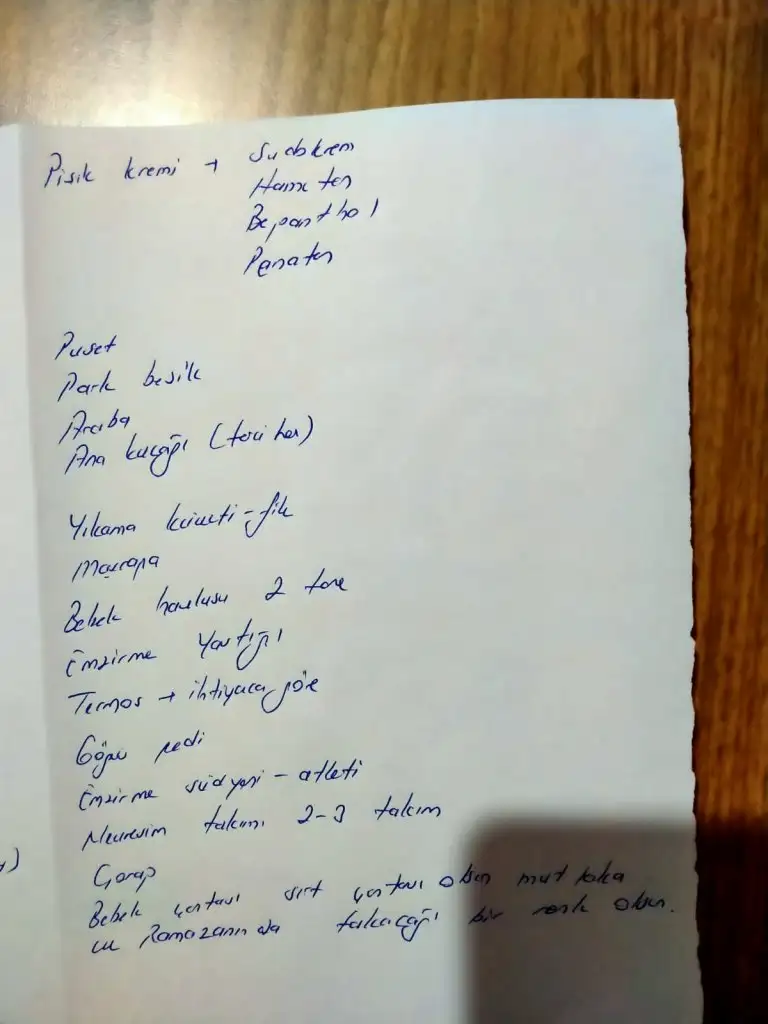 Pişik kremi → Sudokrem
Hametan
Bepanthol
Panaten
Puset
Park beşik
Araba
Ana kucağı (tercihen)
Yıkama küveti - file
Maşrapa
Bebek havlusu 2 tane
Emzirme Yastığı
Termos → ihtiyaca göre
Göğüs pedi
Emzirme südyeni - atleti
Nevresim takımı 2-3 takım
Çorap
Bebek çantası sırt çantası olsun mutlaka
ve Ramazanın da takacağı bir renk olsun.